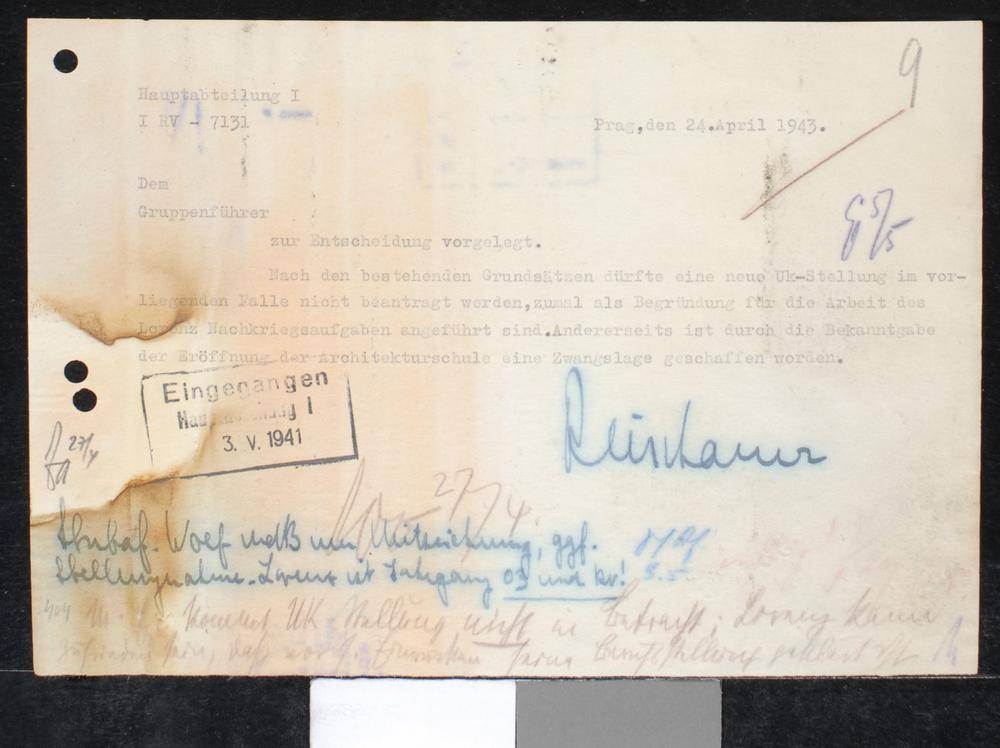 9
Hauptabteilung I
I RV - 7131
Prag,den 24.April 1943.
Dem
Gruppenführer
zur Entscheidung vorgelegt.
Nach den bestehenden Grundsätzen dürfte eine neue Uk-Stellung im vor-
liegenden Falle nicht beantragt werden,zumal als Begründung für die Arbeit des
Lorenz Nachkriegsaufgaben angeführt sind.Andererseits ist durch die Bekanntgabe
der Eröffnung der Architekturschule eine Zwangslage geschaffen worden.
Eingegangen
I
3. V. 1941
27/4
27/4.
Stubaf. Wolf mdB um Mitzeichnung, ggf.
Stellungnahme. Lorenz ist Jahrgang 03 und kv!
kommt UK-Stellung nicht in Betracht; Lorenz kann
zufrieden sein, daß vor